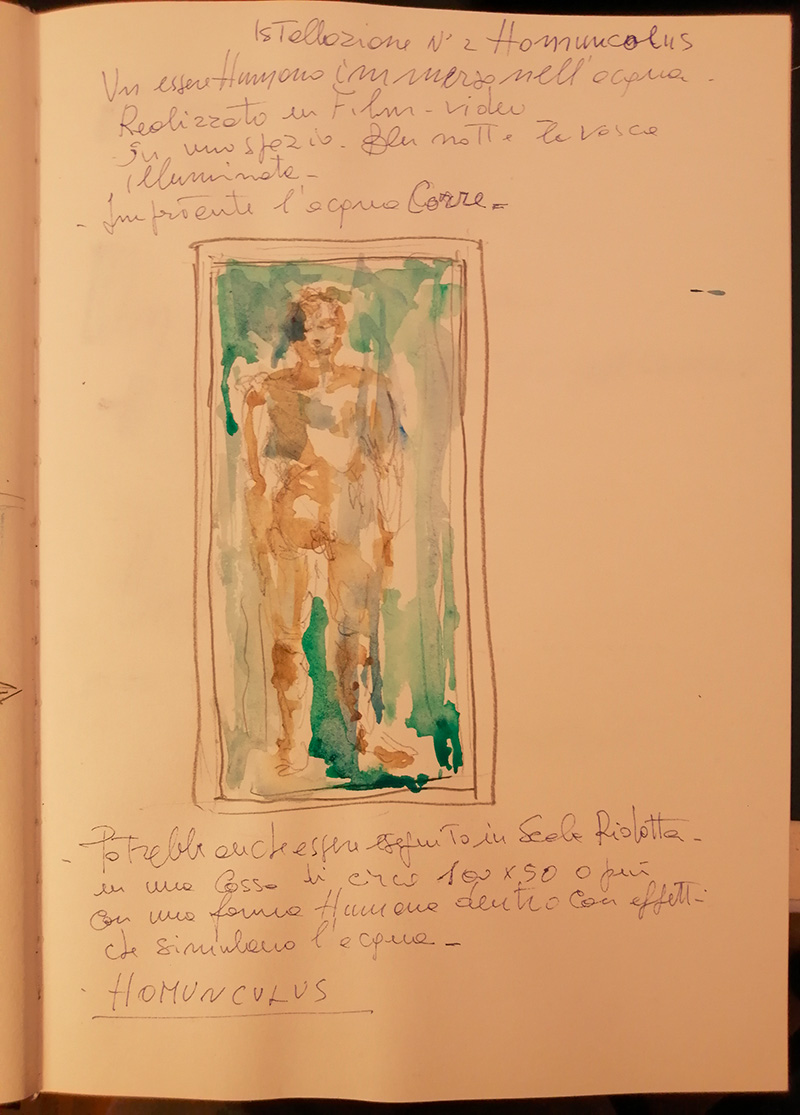 Istallazione N° 2 Homuncolus
Un essere Humano immerso nell'acqua.
Realizzato in Film-video
In uno spazio. Blu notte la vasca
illuminata -
- Improtante l'acqua Corre =
- Potrebbe anche essere eseguito in Scala Ridotta -
in una Cassa di circa 100 x 50 o più
con una forma Humana dentro Con effetti
che simulano l'acqua -
. HOMUNCULUS